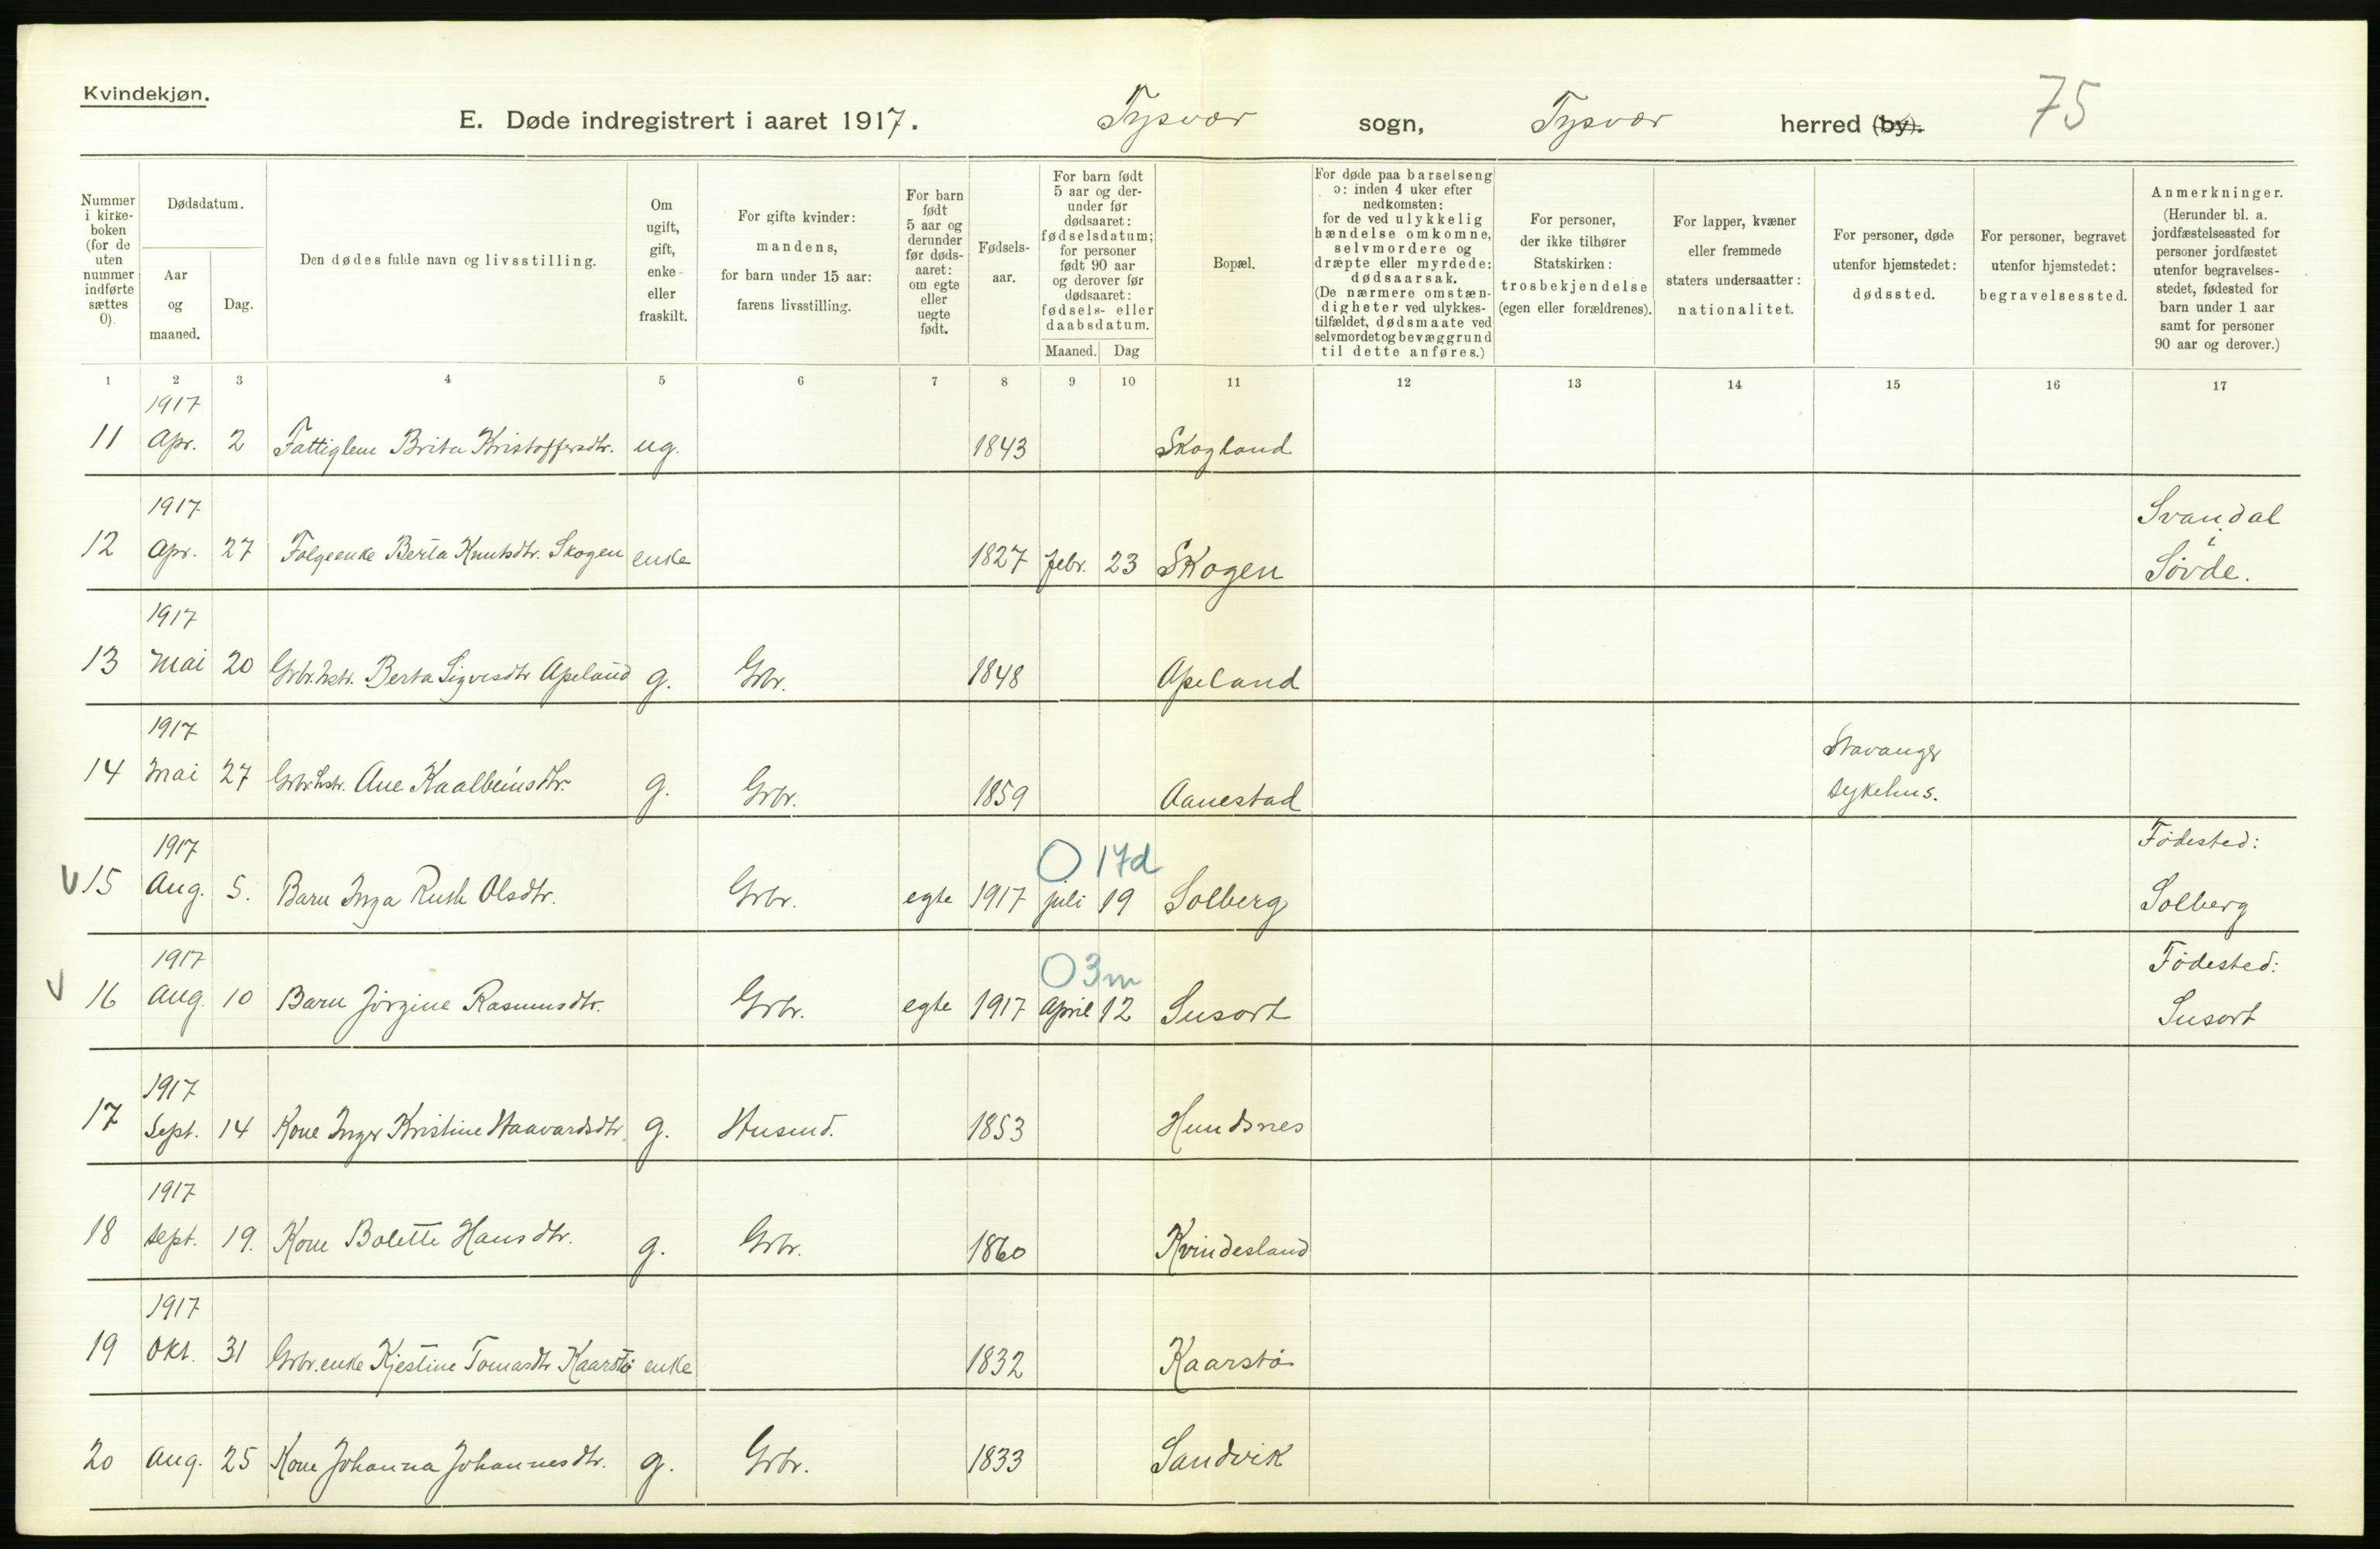 Kvindekjøn.
E. Døde indregistrert i aaret 1917. Tysvær sogn, Tysvær herred (by). 75
Nummer i kirke-boken (for de uten nummer indførte sættes 0).
Dødsdatum.
Aar og maaned.
Dag.
Den dødes fulde navn og livsstilling.
Om ugift, gift, enke eller fraskilt.
For gifte kvinder: mandens, for barn under 15 aar: farens livsstilling.
For barn født 5 aar og derunder før døds-aaret: om egte eller uegte født.
Fødsels-aar.
For barn født 5 aar og der-under før dødsaaret: fødselsdatum; for personer født 90 aar og derover før dødsaaret: fødsels- eller daabsdatum.
Maaned. Dag
Bopæl.
For døde paa barselseng ɔ: inden 4 uker efter nedkomsten: for de ved ulykkelig hændelse omkomne, selvmordere og dræpte eller myrdede: dødsaarsak. (De nærmere omstæn-digheter ved ulykkes-tilfældet, dødsmaate ved selvmordet og bevæggrund til dette anføres.)
For personer, der ikke tilhører Statskirken: trosbekjendelse (egen eller forældrenes).
For lapper, kvæner eller fremmede staters undersaatter: nationalitet.
For personer, døde utenfor hjemstedet: dødssted.
For personer, begravet utenfor hjemstedet: begravelsessted.
Anmerkninger. (Herunder bl. a. jordfæstelsessted for personer jordfæstet utenfor begravelses-stedet, fødested for barn under 1 aar samt for personer 90 aar og derover.)
1 2 3 4 5 6 7 8 9 10 11 12 13 14 15 16 17
1917
11 Apr. 2 Fattiglem Brita Kristoffersdtr. ug. 1843 Skogland
1917 Svandal
i
12 Apr. 27 Folgeenke Berta Knutsdtr. Skogen enke 1827 febr. 23 Skogen Søvde.
1917
13 Mai 20 Grbr.hstr. Berta Sigvesdtr Apeland g. Grbr. 1848 Apeland
1917 Stavanger
14 Mai 27 Grbr.hstr. Ane Kaalbeinsdtr. g. Grbr. 1859 Aanestad sykehus.
1917 0 17d Fødested:
V 15 Aug. 5. Barn Inga Ruth Olsdtr. Grbr. egte 1917 juli 19 Solberg Solberg
1917 0 3m Fødested:
V 16 Aug. 10 Barn Jørgine Rasmusdtr. Grbr. egte 1917 April 12 Susort Susort
1917
17 Sept. 14 Kone Inger Kristine Haavardsdtr g. Husmd. 1853 Hundsnes
1917
18 Sept. 19. Kone Bolette Hansdtr. g. Grbr. 1860 Kvindesland
1917
19 Okt. 31 Grbr.enke Kjestine Tomasdtr Kaarstø enke 1832 Kaarstø
20 Aug. 25 Kone Johanna Johannesdtr. g. Grbr. 1833 Sandvik